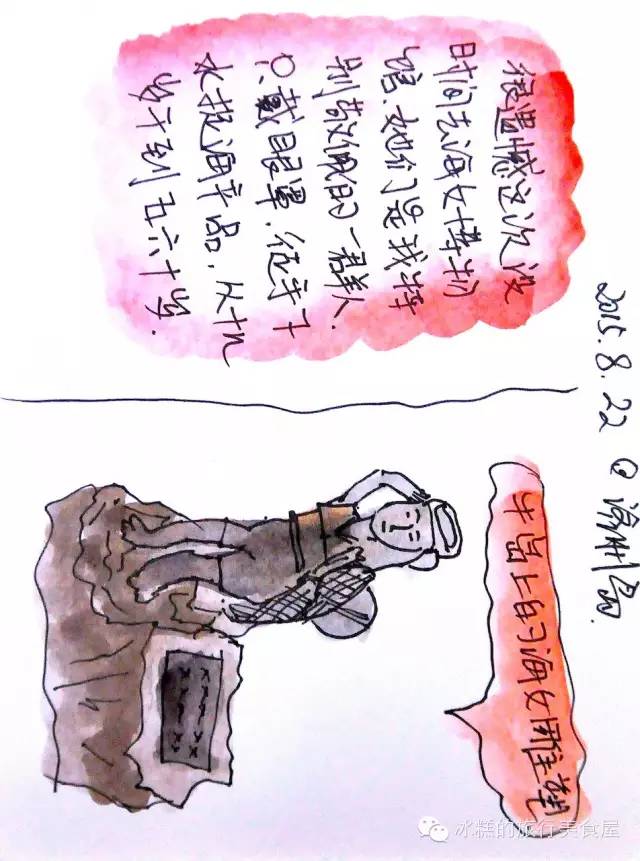 2015.8.22 @ 济州岛.
很遗憾这次没
时间去海女博物
馆、她们是我特
别敬佩的一群人.
只戴眼罩,徒手下
水捉海产品,从十几
岁干到五六十岁.
牛岛上的海女雕塑
冰糕的旅行美食屋